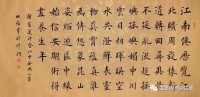 江南倦歷覽江
北曠周旋懷新
道轉迥尋異景
不延亂流趨正
絕孤嶼媚中川
雲日相輝映空
水共澄鮮表靈
物莫賞蘊真誰
為傳想像崑山
姿緬邈區中緣
始信安期術得
盡養生年
謝靈運詩登江中孤嶼一首